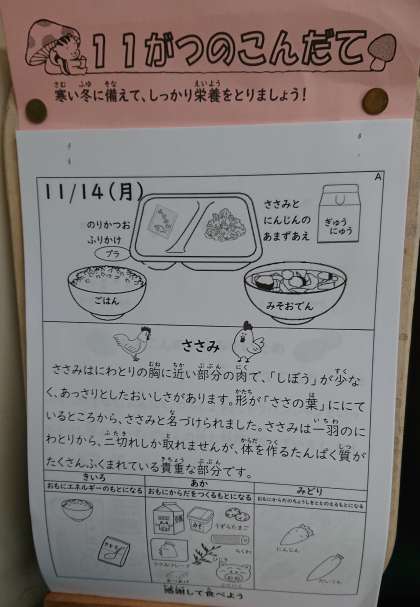 11がつのこんだて
寒い冬に備えて、しっかり栄養をとりましょう!
A
11/14(月)
のりかつお
ふりかけ
プラ
ささみと
にんじんの
あまずあえ
ぎゅう
にゅう
ごはん
みそおでん
ささみ
ささみはにわとりの胸に近い部分の肉で、「しぼう」が少な
く、あっさりとしたおいしさがあります。形が「ささの葉」ににて
いるところから、ささみと名づけられました。ささみは一羽のに
わとりから、二切れしか取れませんが、体を作るたんぱく質が
たくさんふくまれている貴重な部分です。
きいろ
おもにエネルギーのもとになる
あか
おもにからだをつくるもとになる
みどり
おもにからだのちょうしをととのえるもとになる
うずらたまご
ちくわ
にんじん
だいこん
感謝して食べよう